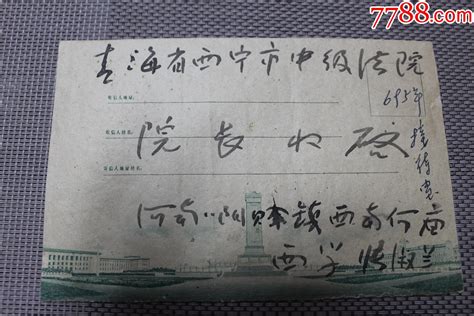 7788.com
青海省西宁市中级法院
收信人地址:
收信人姓名:
院长收启
寄信人地址姓名:
河南 镇西南何庙
西学 张淑兰